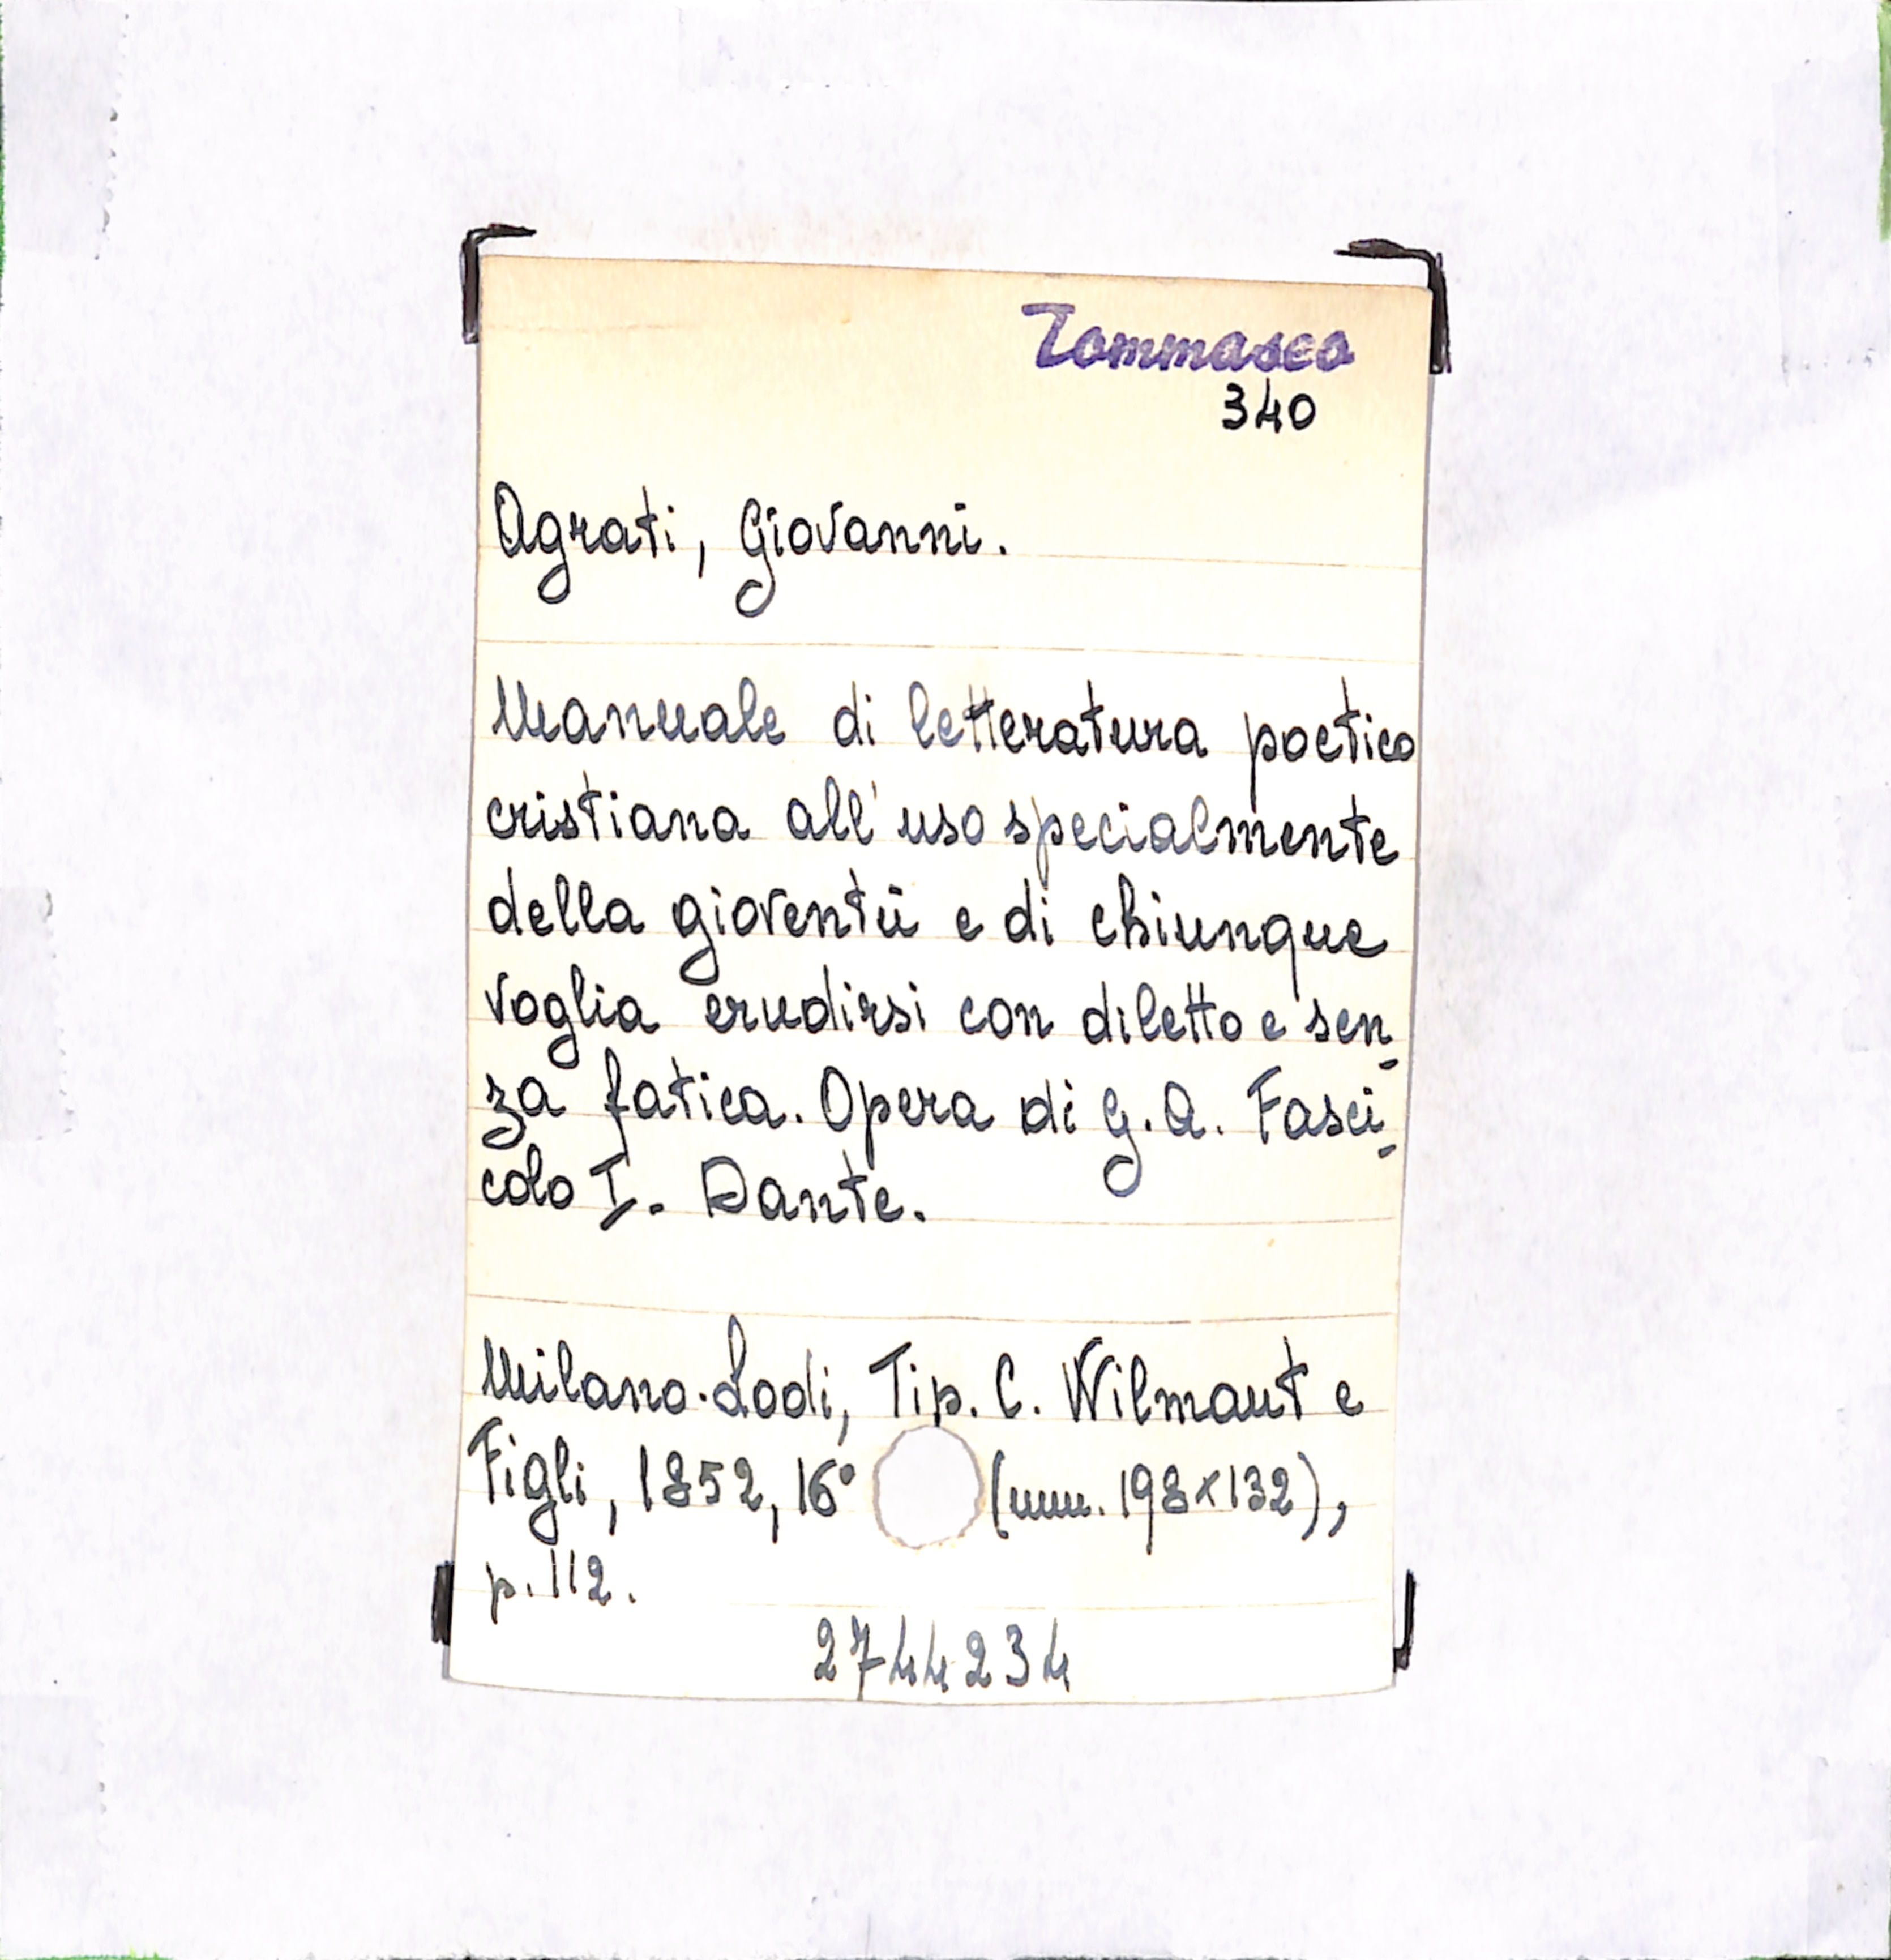 Tommaseo
340
Agrati, Giovanni.
Manuale di letteratura poetico
cristiana all'uso specialmente
della gioventù e di chiunque
voglia erudirsi con diletto e sen-
za fatica. Opera di G. A. Fasci-
colo I. Dante.
Milano-Lodi, Tip. C. Wilmant e
Figli, 1852, 16° (mm. 198x132),
p. 112.
2744234